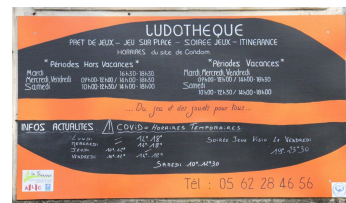 LUDOTHEQUE
PRET DE JEUX - JEU SUR PLACE - SOIREE JEUX - ITINERANCE
HORAIRES du site de Condom.
*Périodes Hors Vacances*
Mardi 16h30-18h30
Mercredi, Vendredi 09h00-12h00 / 14h00-18h30
Samedi 10h00-12h30 / 14h00-16h30
*Périodes Vacances*
Mardi, Mercredi, Vendredi
09h00-12h00 / 14h00-18h30
Samedi
10h00-12h30 / 14h00-16h30
...Du jeu et des jouets pour tous...
INFOS ACTUALITES COVID = HORAIRES TEMPORAIRES
LUNDI 14h 18h
MERCREDI 14h 18h
JEUDI 10h 12h
VENDREDI 10h 12h
SAMEDI 10h 12h30
SOIREE JEUX VISIO LE VENDREDI
Tél : 05 62 28 46 56